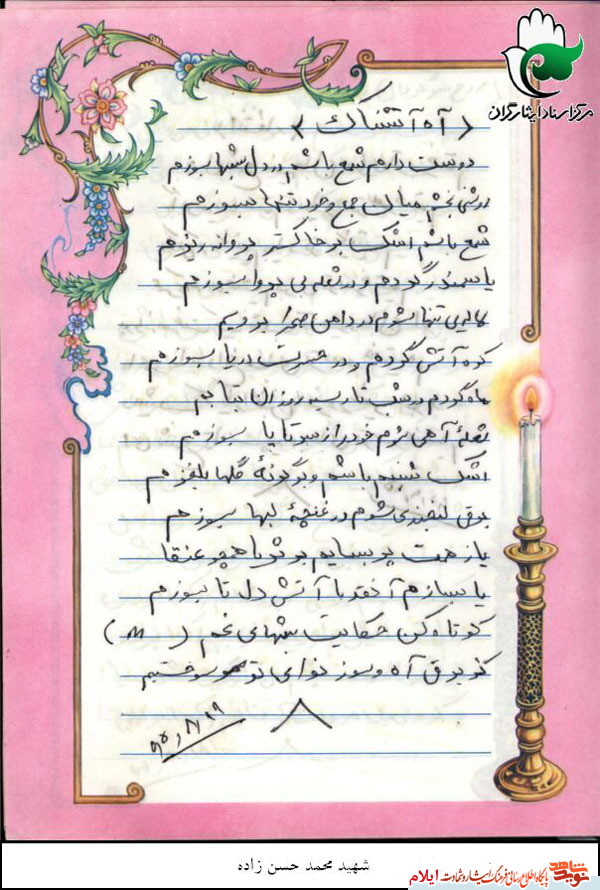 مرکز اسناد ایثارگران
﴿ آه آتشناک ﴾
دوست دارم شمع باشم در دل شبها بسوزم
روشنی بخشم میان جمع و خود تنها بسوزم
شمع باشم اشک بر خاکستر پروانه ریزم
یا سمندر گردم و در شعله بی پروا بسوزم
لاله‌ی تنها شوم در دامن صحرا برویم
کوه آتش گردم و در حسرت دریا بسوزم
ماه گردم در شب تار سیه روزان بتابم
شعله آهی شوم خود را ز سر تا پا بسوزم
اشک شبنم باشم و بر گونهٔ گلها بلغزم
برق لبخندی شوم در غنچهٔ لبها بسوزم
یا ز همت پر بسایم بر ثریا همچو عنقا
یا بسازم آنقدر با آتش دل تا بسوزم
کوتاه کن حکایت شبهای غم ( )
کز برق آه و سوز نوای تو سوختیم
۸
شهید محمد حسن زاده
شاهد
نوید
پایگاه اطلاع رسانی فرهنگ ایثار و شهادت ایلام